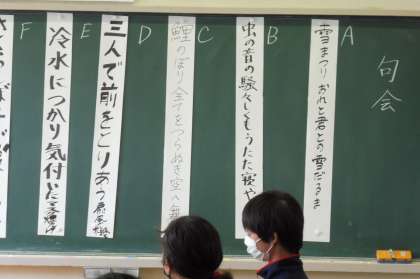 句会
A
雪まつりおれと君との雪だるま
B
虫の音の騒々しくもうたた寝や
C
鯉のぼり全てをつらぬき空へ
D
三人で前をとりあう扇風機
E
冷水につかり気付いた
F